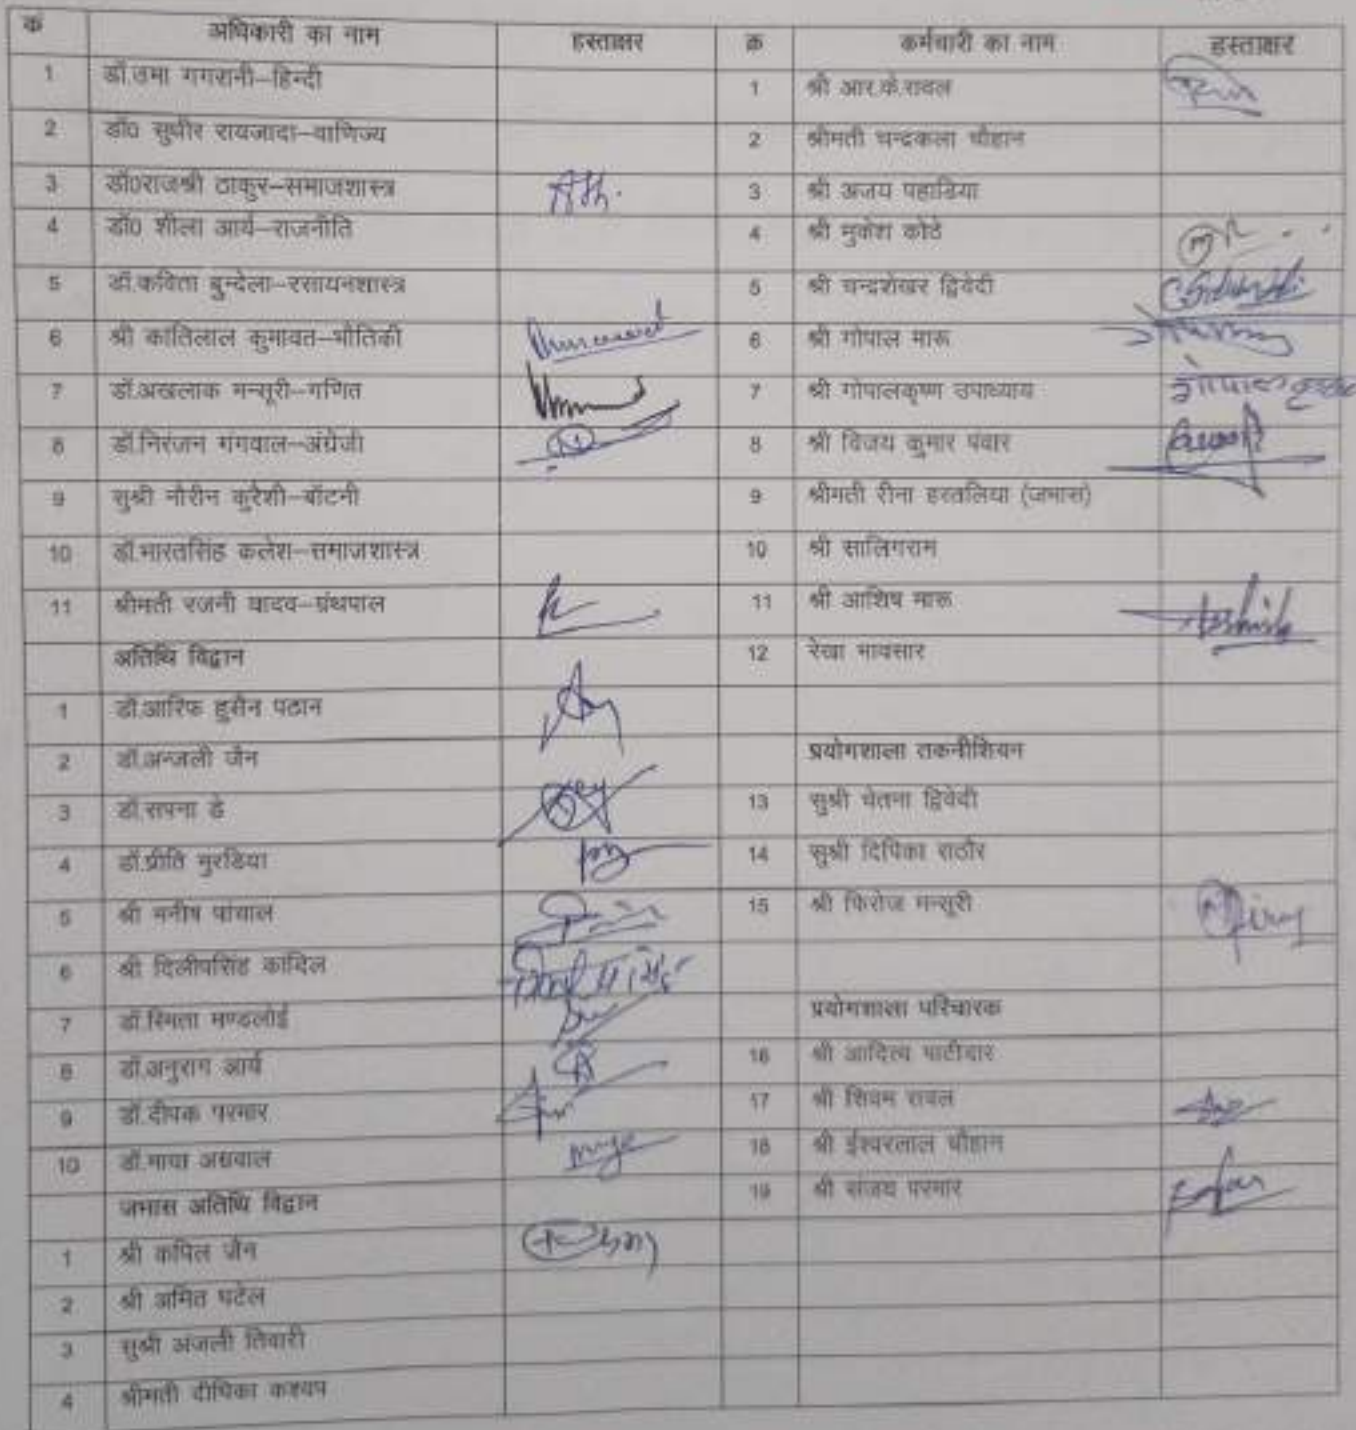 क्र अधिकारी का नाम हस्ताक्षर क्र कर्मचारी का नाम हस्ताक्षर
1 डॉ.उमा गगरानी–हिन्दी 1 श्री आर.के.रावल
2 डॉ0 सुधीर रायजादा–वाणिज्य 2 श्रीमती चन्द्रकला चौहान
3 डॉ0राजश्री ठाकुर–समाजशास्त्र 3 श्री अजय पहाडिया
4 डॉ0 शीला आर्य–राजनीति 4 श्री मुकेश कोठे
5 डॉ.कविता बुन्देला–रसायनशास्त्र 5 श्री चन्द्रशेखर द्विवेदी
6 श्री कांतिलाल कुमावत–भौतिकी 6 श्री गोपाल मारू
7 डॉ.अखलाक मन्सूरी–गणित 7 श्री गोपालकृष्ण उपाध्याय
8 डॉ.निरंजन गंगवाल–अंग्रेजी 8 श्री विजय कुमार पंवार
9 सुश्री नौरीन कुरैशी–बॉटनी 9 श्रीमती रीना हरतलिया (जभास)
10 डॉ.भारतसिंह कलेश–समाजशास्त्र 10 श्री सालिगराम
11 श्रीमती रजनी यादव–ग्रंथपाल 11 श्री आशिष मारू Ashish
अतिथि विद्वान 12 रेखा भावसार
1 डॉ.आरिफ हुसैन पठान
2 डॉ.अन्जली जैन प्रयोगशाला तकनीशियन
3 डॉ.सपना डे 13 सुश्री चेतना द्विवेदी
4 डॉ.प्रीति मुरडिया 14 सुश्री दिपिका राठौर
5 श्री मनीष पांचाल 15 श्री फिरोज मन्सूरी
6 श्री दिलीपसिंह कादिल
7 डॉ.स्मिता मण्डलोई प्रयोगशाला परिचारक
8 डॉ.अनुराग आर्य 16 श्री आदित्य पाटीदार
9 डॉ.दीपक परमार 17 श्री शिवम रावल
10 डॉ.माया अग्रवाल 18 श्री ईश्वरलाल चौहान
जभास अतिथि विद्वान 19 श्री संजय परमार
1 श्री कपिल जैन
2 श्री अमित पटेल
3 सुश्री अंजली तिवारी
4 श्रीमती दीपिका कश्यप